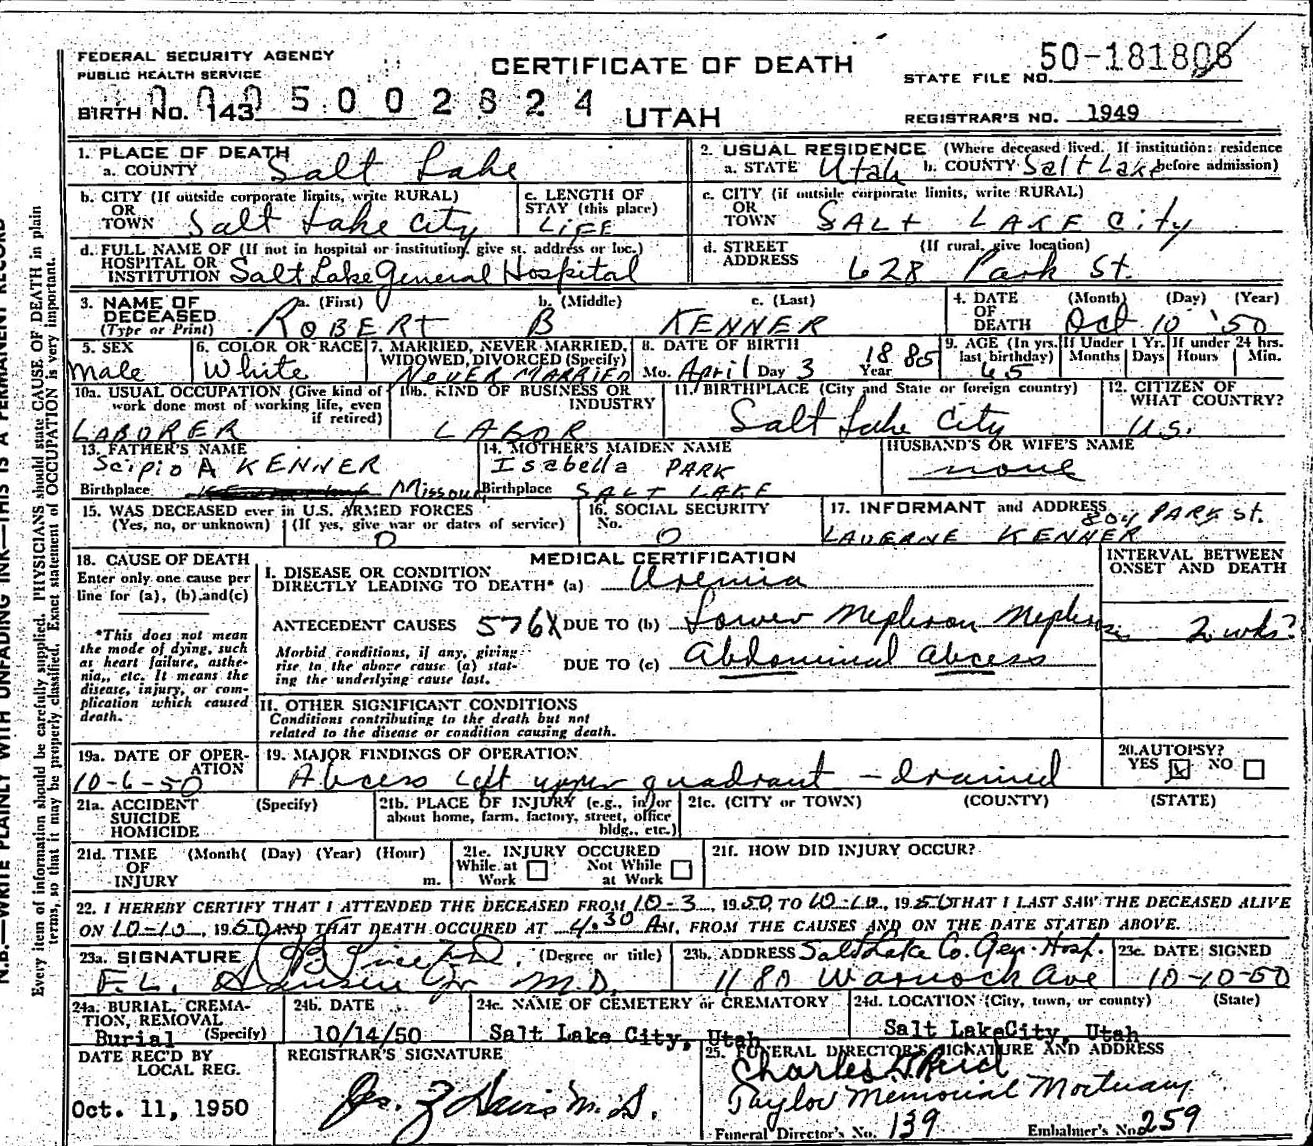 FEDERAL SECURITY AGENCY
PUBLIC HEALTH SERVICE
CERTIFICATE OF DEATH
STATE FILE NO. 50-181808
BIRTH NO. 143 0005002824
UTAH
REGISTRAR'S NO. 1949
N.B.—WRITE PLAINLY WITH UNFADING INK—THIS IS A PERMANENT RECORD
Every item of information should be carefully supplied. PHYSICIANS should state CAUSE OF DEATH in plain
terms, so that it may be properly classified. Exact statement of OCCUPATION is very important.
1. PLACE OF DEATH
a. COUNTY Salt Lake
2. USUAL RESIDENCE (Where deceased lived. If institution: residence
a. STATE Utah b. COUNTY Salt Lake before admission)
b. CITY (If outside corporate limits, write RURAL)
OR
TOWN Salt Lake City
c. LENGTH OF
STAY (this place)
LIFE
c. CITY (if outside corporate limits, write RURAL)
OR
TOWN SALT LAKE City
d. FULL NAME OF (If not in hospital or institution, give st. address or loc.)
HOSPITAL OR
INSTITUTION Salt Lake General Hospital
d. STREET (If rural, give location)
ADDRESS 628 Park St.
3. NAME OF
DECEASED
(Type or Print)
a. (First) b. (Middle) c. (Last)
ROBERT B KENNER
4. DATE (Month) (Day) (Year)
OF
DEATH Oct 10 '50
5. SEX
Male
6. COLOR OR RACE
White
7. MARRIED, NEVER MARRIED,
WIDOWED, DIVORCED (Specify)
NEVER MARRIED
8. DATE OF BIRTH
Mo. April Day 3 Year 1885
9. AGE (In yrs. last birthday)
65
If Under 1 Yr.
Months Days
If under 24 hrs.
Hours Min.
10a. USUAL OCCUPATION (Give kind of
work done most of working life, even
if retired)
LABORER
10b. KIND OF BUSINESS OR
INDUSTRY
LABOR
11. BIRTHPLACE (City and State or foreign country)
Salt Lake City
12. CITIZEN OF
WHAT COUNTRY?
U.S.
13. FATHER'S NAME
Scipio A KENNER
Birthplace Missouri
14. MOTHER'S MAIDEN NAME
Isabella PARK
Birthplace SALT LAKE
HUSBAND'S OR WIFE'S NAME
none
15. WAS DECEASED ever in U.S. ARMED FORCES
(Yes, no, or unknown) (If yes, give war or dates of service)
0
16. SOCIAL SECURITY
No. 0
17. INFORMANT and ADDRESS 804 PARK St.
LAVERNE KENNER
18. CAUSE OF DEATH
Enter only one cause per
line for (a), (b), and (c)
*This does not mean
the mode of dying, such
as heart failure, asthe-
nia,, etc. It means the
disease, injury, or com-
plication which caused
death.
MEDICAL CERTIFICATION
I. DISEASE OR CONDITION
DIRECTLY LEADING TO DEATH* (a) Uremia
ANTECEDENT CAUSES 576X DUE TO (b) Lower Nephron Nephrosis
Morbid conditions, if any, giving
rise to the above cause (a) stat-
ing the underlying cause last.
DUE TO (c) Abdominal abcess
INTERVAL BETWEEN
ONSET AND DEATH
2 wks?
II. OTHER SIGNIFICANT CONDITIONS
Conditions contributing to the death but not
related to the disease or condition causing death.
19a. DATE OF OPER-
ATION
10-6-50
19. MAJOR FINDINGS OF OPERATION
Abcess left upper quadrant - drained
20. AUTOPSY?
YES NO
21a. ACCIDENT (Specify)
SUICIDE
HOMICIDE
21b. PLACE OF INJURY (e.g., in or
about home, farm, factory, street, office
bldg., etc.)
21c. (CITY or TOWN) (COUNTY) (STATE)
21d. TIME (Month( (Day) (Year) (Hour)
OF
INJURY m.
21e. INJURY OCCURED
While at Work Not While at Work
21f. HOW DID INJURY OCCUR?
22. I HEREBY CERTIFY THAT I ATTENDED THE DECEASED FROM 10-3, 1950, TO 10-10, 1950 THAT I LAST SAW THE DECEASED ALIVE
ON 10-10, 1950 AND THAT DEATH OCCURED AT 4:30 AM, FROM THE CAUSES AND ON THE DATE STATED ABOVE.
23a. SIGNATURE (Degree or title)
F. L. Jr M.D.
23b. ADDRESS Salt Lake Co. Gen. Hosp.
1180 Warnock Ave
23c. DATE SIGNED
10-10-50
24a. BURIAL, CREMA-
TION, REMOVAL
(Specify)
Burial
24b. DATE
10/14/50
24c. NAME OF CEMETERY or CREMATORY
Salt Lake City, Utah
24d. LOCATION (City, town, or county) (State)
Salt LakeCity, Utah
DATE REC'D BY
LOCAL REG.
Oct. 11, 1950
REGISTRAR'S SIGNATURE
25. FUNERAL DIRECTOR'S SIGNATURE AND ADDRESS
Taylor Memorial Mortuary
Funeral Director's No. 139 Embalmer's No. 259